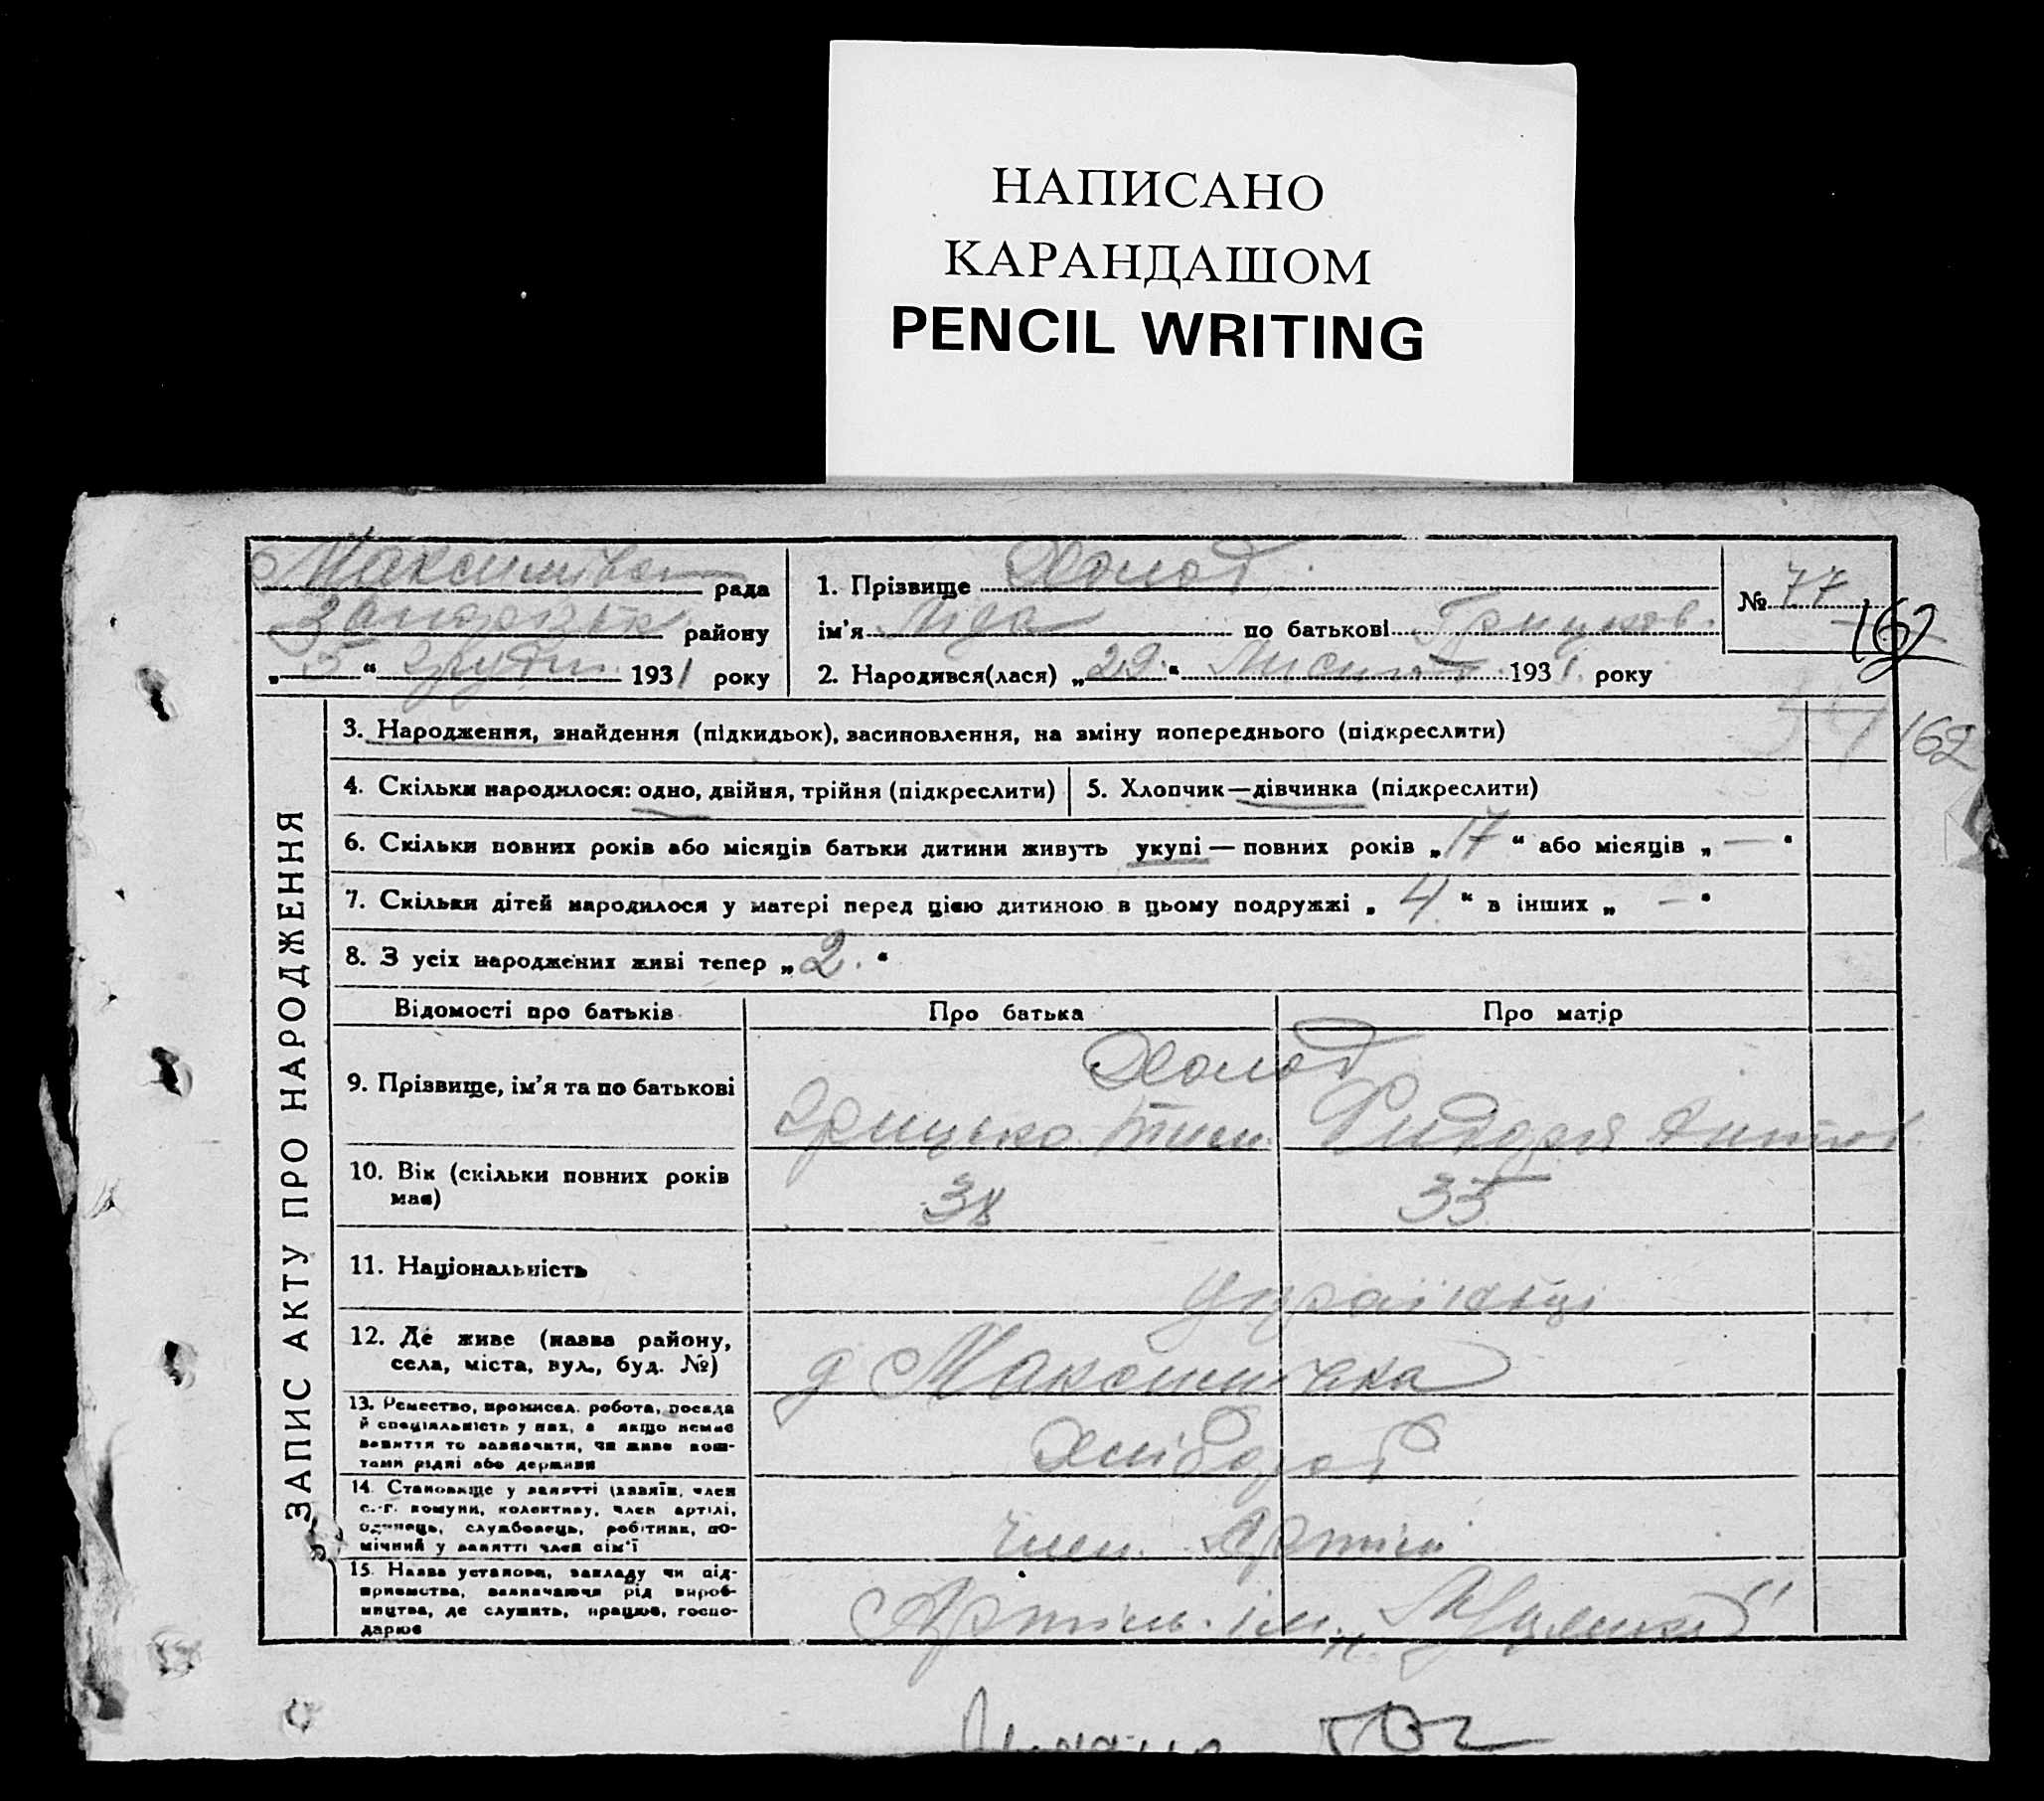 НАПИСАНО
КАРАНДАШОМ
PENCIL WRITING
рада
1. Прізвище Холод
№ 77
району
ім'я Ліда по батькові Грицков.
162
„5“ грудн. 1931 року
2. Народився(лася) „29“ Листопад 1931. року
ЗАПИС АКТУ ПРО НАРОДЖЕННЯ
3. Народження, знайдення (підкидьок), засиновлення, на зміну попереднього (підкреслити)
162
4. Скільки народилося: одно, двійня, трійня (підкреслити)
5. Хлопчик—дівчинка (підкреслити)
6. Скільки повних років або місяців батьки дитини живуть укупі — повних років „17“ або місяців „—“
7. Скільки дітей народилося у матері перед цією дитиною в цьому подружжі „4“ в інших „—“
8. З усіх народжених живі тепер „2.“
Відомості про батьків
Про батька
Про матір
9. Прізвище, ім'я та по батькові
Холод
Грицько Тим.
10. Вік (скільки повних років має)
38
35
11. Національність
Українці
12. Де живе (назва району,
села, міста, вул., буд. №)
Максимівка
13. Ремество, промисел, робота, посада
й спеціяльність у них, а якщо немає
заняття то зазначити, чи живе кош-
тами рідні або держави
Хлібороб
14. Становище у занятті (хазяїн, член
с.-г. комуни, колективу, член артілі,
одинець, службовець, робітник, по-
мічний у занятті член сім'ї
член Артілі
15. Назва установи, закладу чи під-
приємства, зазначаючи рід вироб-
ництва, де служить, працює, госпо-
дарює
Артіль ім.